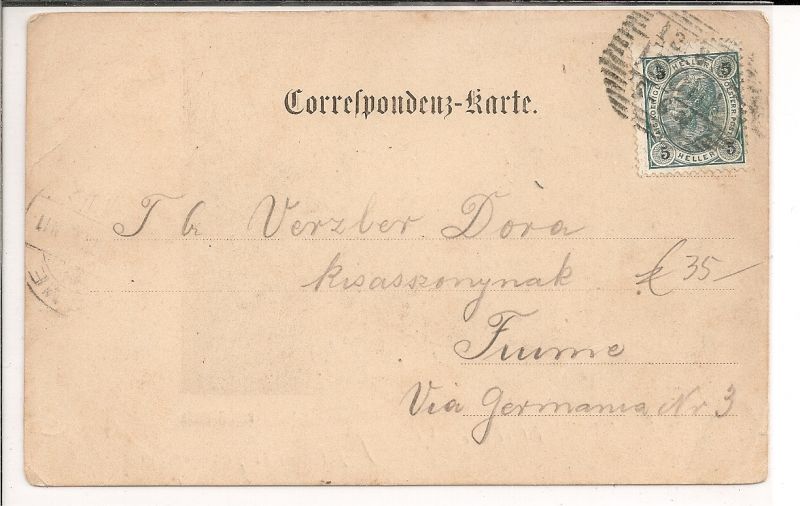 Correspondenz-Karte.
5 HELLER 5
5 HELLER 5
T br Verzber Dora
kisasszonynak
£ 35
Fiume
Via Germania Nr 3